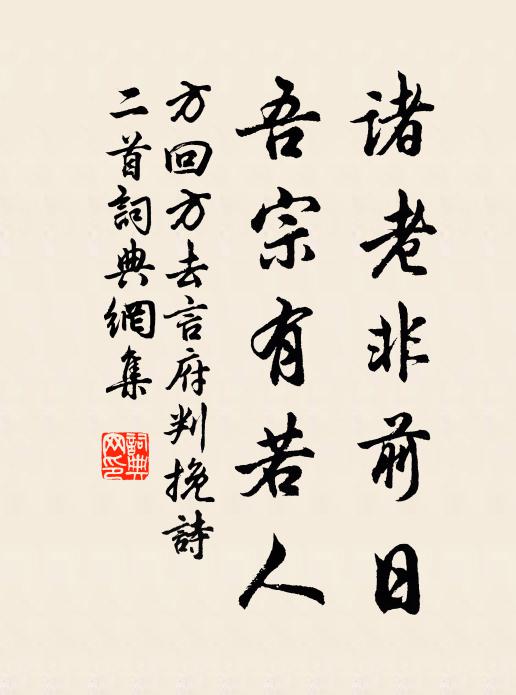 諸老非前日
吾宗有若人
方回方去言府判挽詩
二首詞典網集
詞典網印